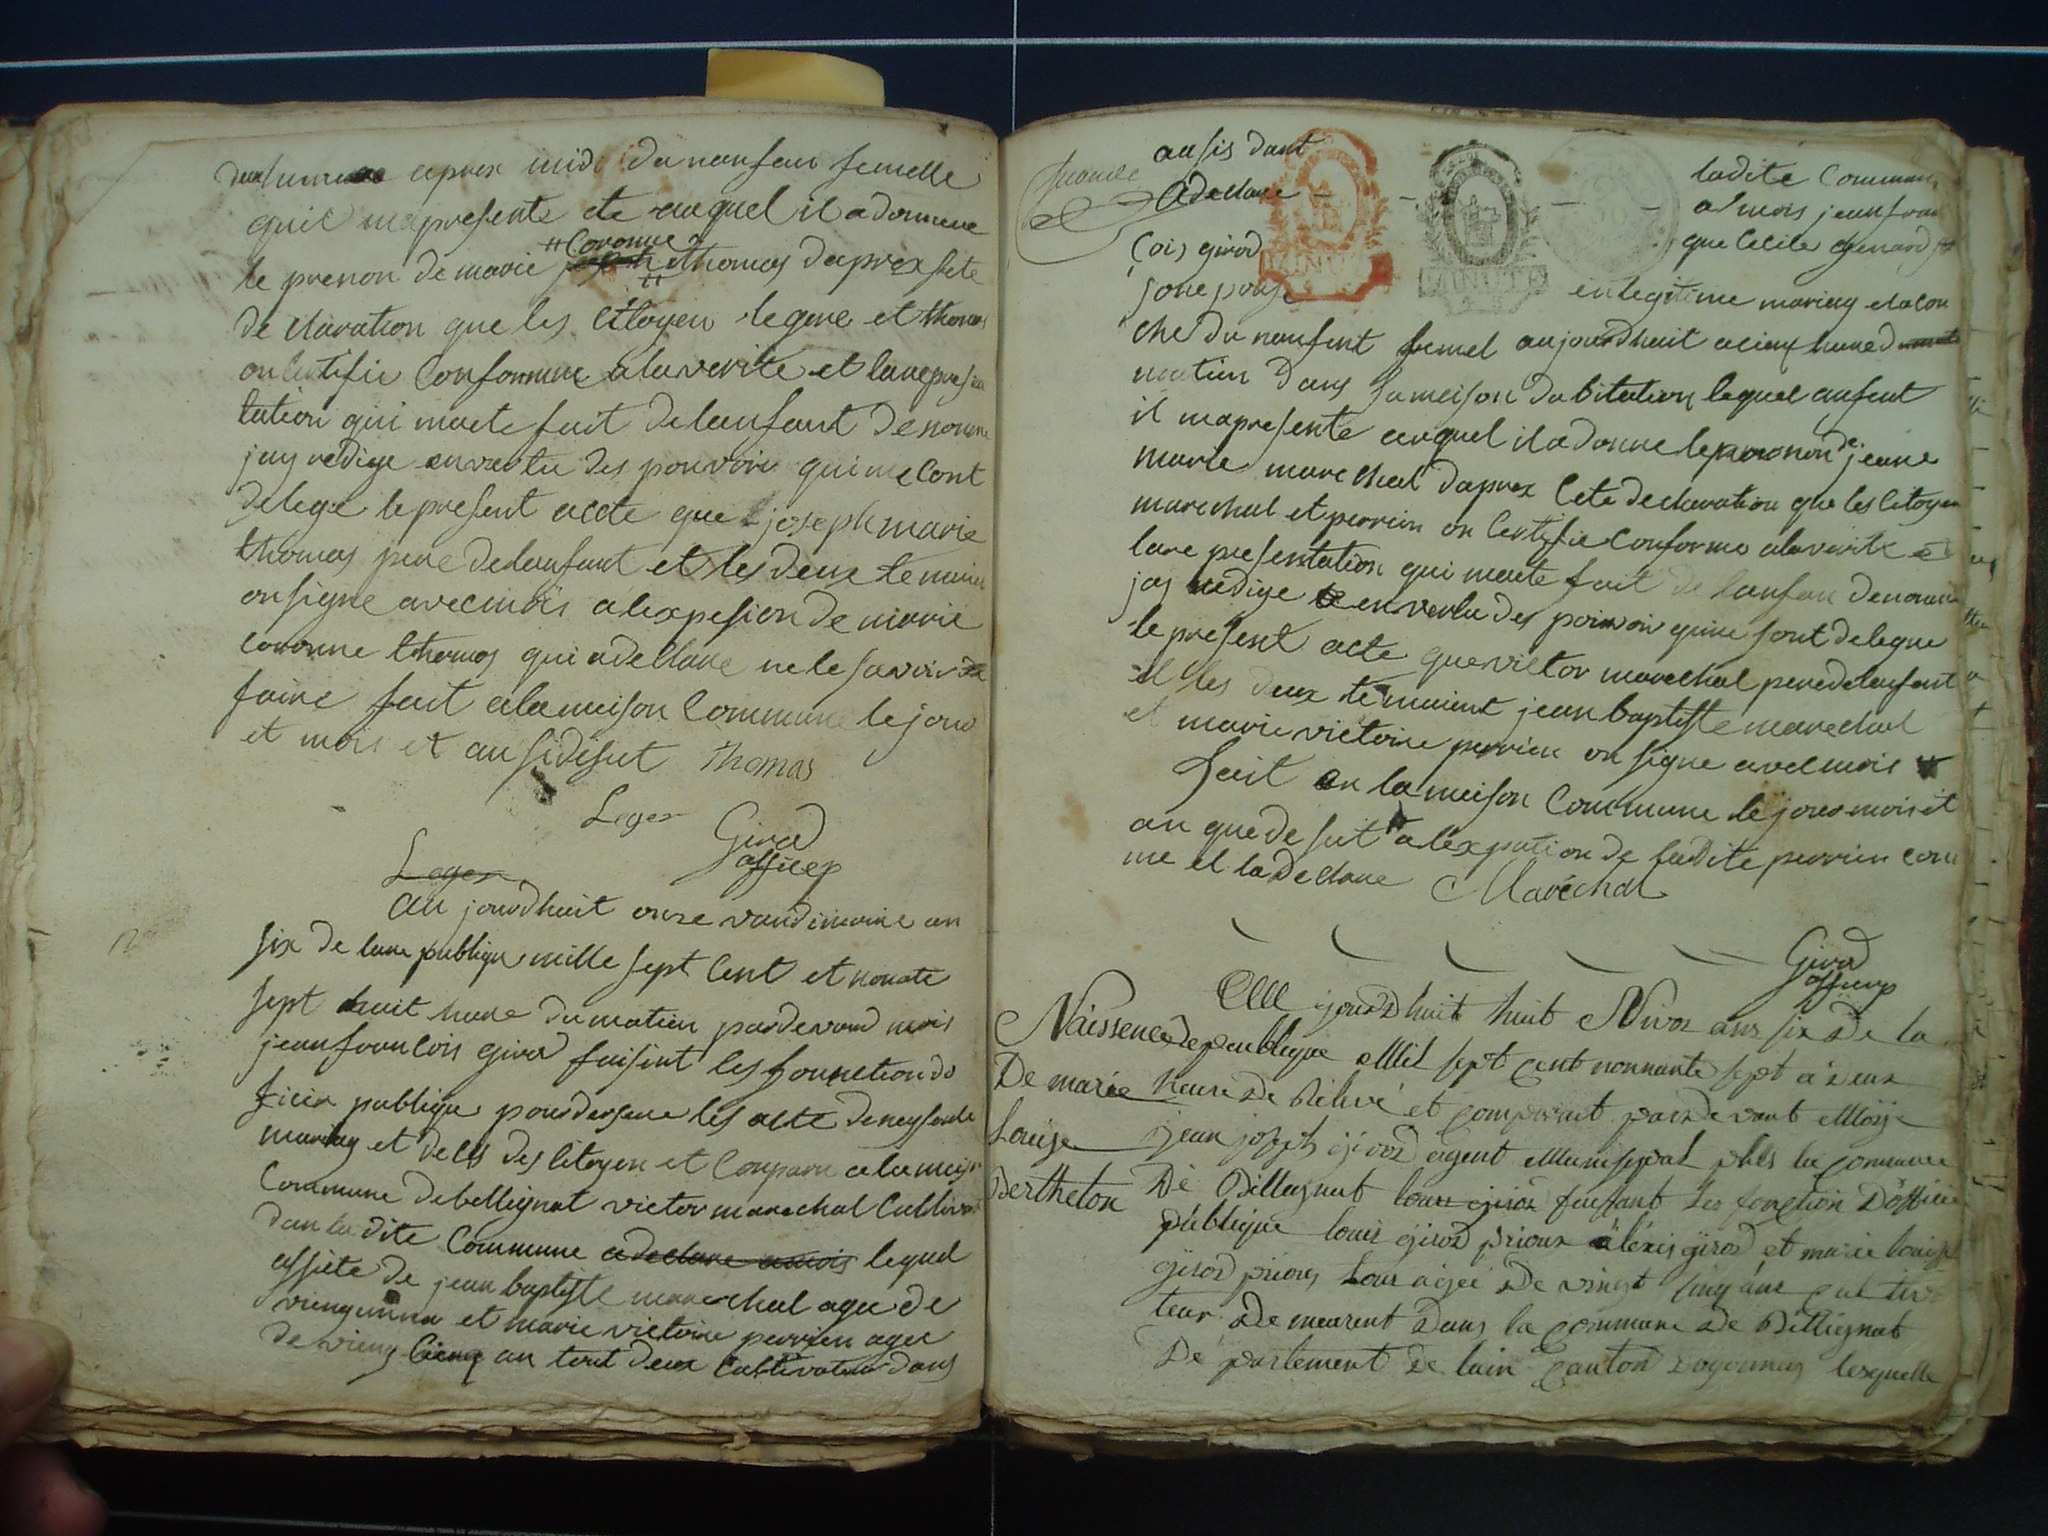 apres midi du nanfan femelle
quil mapresente ete auquel il a donnene
#Coronne
le prenon de marie joseph thomas dapres sete
de claration que les Citoyen legere et thomas
on Certifie Conformme alaverite et larepresen
tation qui maete fait delanfant denomme
jay redige anvertu des pouvoir qui me sont
delege le present acte que joseph marie
thomas pere delanfant et les deux temoien
on signe avecmois alexpesion de marie
coronne thomas qui adeClare ne le savoir
faire fait alamaison Commune lejour
et mois et an sidisut Thomas
Leger
Girod
officep
Leger
au jourdhuit onze vandimaire an
six de lare publique mille sept Cent et nonate
sept huit hure du matien pardevand mois
jeanfrancois Girod faisint les fonnction do
ficier publique pour les acte deneysansse
mariag et deces des Citoyen et Conparu alamaison
Commune debellignat victor marechal Cultivat
dan la dite Commune adeclare amois lequel
assiete de jean baptiste marechal agee de
et marie victoire perrien agee
de vieng Cienq an tout deux Cultivateur dans
ausis dant
adeClare
ladite Commun
Cois girod
sone pouse
almois jeanfran
que Cecile
enlegitime mariag elacou
che du nanfent femel aujourdhuit
matien dans samaison dabitation lequel anfent
il mapresente auquel ila donne leprenon de jeane
marie marechal dapres Cete declaration que les Citoyen
marechal et perrien on Certifie Conforme alaverite et
lare presentation qui maete fait de lanfan denomme
jay redige en vertu des poinvoir quime sont delegue
le present acte que victor marechal peredelanfant
et les deux temoient jean baptiste marechal
et marie victoire perrien on signe avecmois
fait en lamaison Commune lejour mois et
an que de sut alexpution de ladite perrien com
me el ladeClare Maréchal
Girod
officep
Naissence
De marie
Louise
Bertheton
jourdhuit huit Nivoz ans six de la
Republique Mil sept cent nonnante sept a deux
heure de Relivé et comparait par de vant Moÿe
jean joseph girod agent Munisipal de la commune
De Billegnat louis girod faissant les fonction Dofficie
publique louis girod prioux aléxis girod et marie louisse
girod louis agée de vingt sinq ans cultiv
teur de meurent dans la commune de Billignat
De partement de lain Canton doyonnas lesquelle